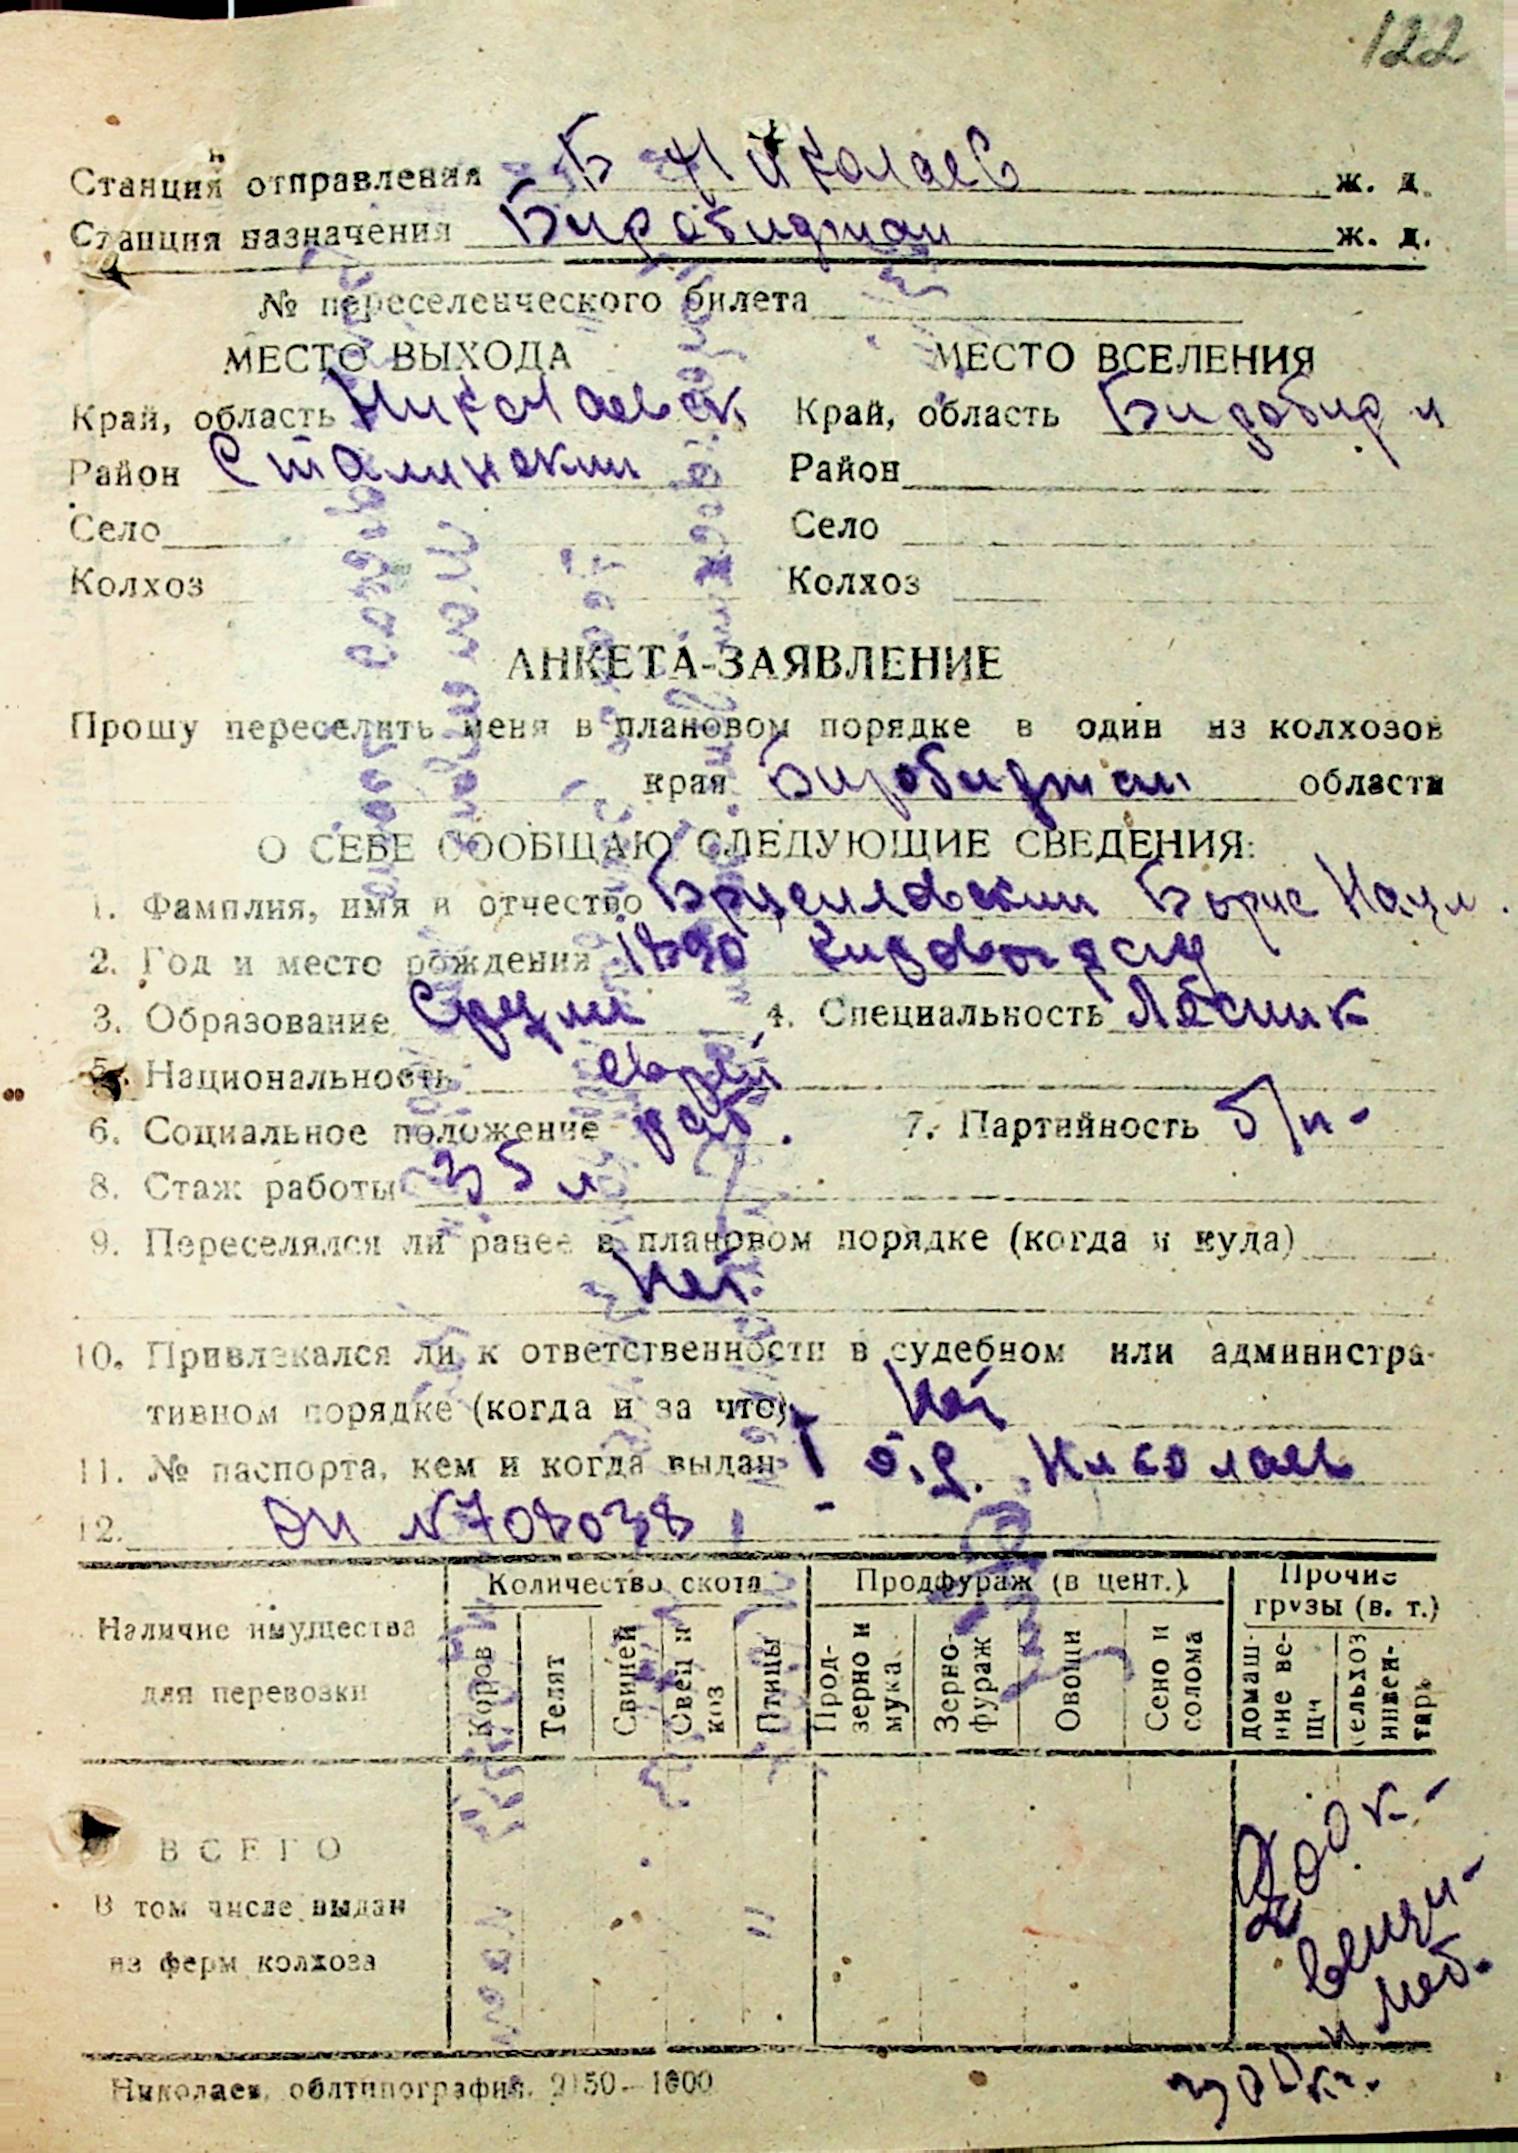 122
Станция отправления Б Николаев ж. д.
Станция назначения Биробиджан ж. д.
№ переселенческого билета
МЕСТО ВЫХОДА МЕСТО ВСЕЛЕНИЯ
Край, область Николаевск. Край, область
Район Сталинский Район
Село Село
Колхоз Колхоз
АНКЕТА-ЗАЯВЛЕНИЕ
Прошу переселить меня в плановом порядке в один из колхозов
края Биробиджан области
О СЕБЕ СООБЩАЮ СЛЕДУЮЩИЕ СВЕДЕНИЯ:
1. Фамилия, имя и отчество Брусиловский Борис Наум.
2. Год и место рождения 1890 Кировоград
3. Образование 4. Специальность Лесник
5. Национальность еврей
6. Социальное положение раб. 7. Партийность б/п-
8. Стаж работы 35 л
9. Переселялся ли ранее в плановом порядке (когда и куда)
Нет
10. Привлекался ли к ответственности в судебном или администра-
тивном порядке (когда и за что) Нет
11. № паспорта, кем и когда выдан I о.д. Николаев
12. №708038
Наличие имущества для перевозки
Количество скота Продфураж (в цент.) Прочие грузы (в. т.)
Коров Телят Свиней Овец и коз Птицы Прод-зерно и мука Зерно-фураж Овощи Сено и солома домаш-ние ве-щи сельхоз инвен-тарь
ВСЕГО
В том числе выдан
из ферм колхоза
200 к.-
вещи-
и меб.
300 кг.
Николаев, облтипография. 2150-1000